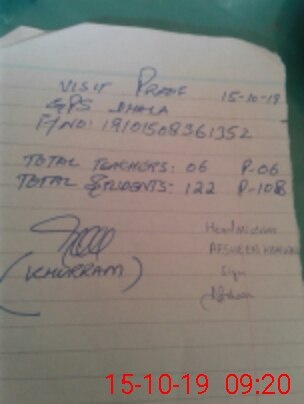 VISIT PROOF 15-10-19
GPS DHALA
M NO: 19101508361352
TOTAL TEACHERS: 06 P-06
TOTAL STUDENTS: 122 P-108
(KHURRAM)
Headmistress
Sign
15-10-19 09:20